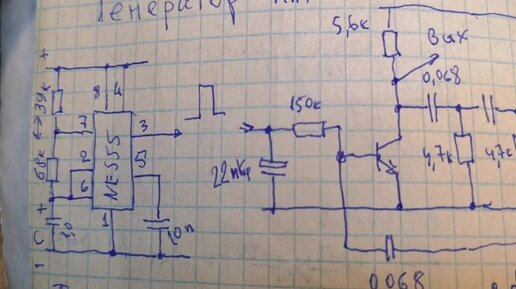 Генератор
5,6к
Вых
+
8 4
0,068
39к
7
3
150к
68к
2
NE555
5
4,7к
4,7к
6
22мкф
+
1,0
1
10n
C
0,068